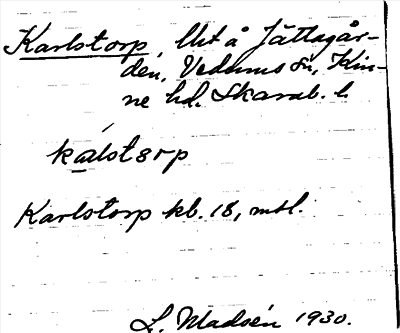 Karlstorp, Utä å Jättagår-
den, Vedums sn, Kin-
ne hd. Skarab. l.
kálstɜrp
Karlstorp kb. 18, mtl.
L. Madsén 1930.